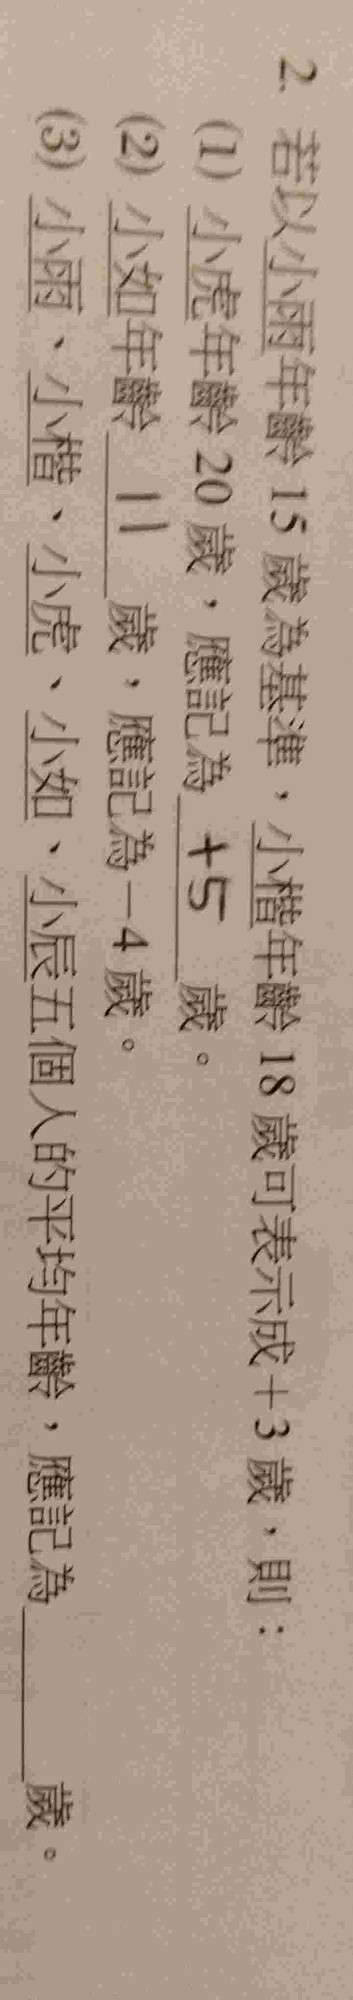 2. 若以小雨年齡 15 歲為基準，小楷年齡 18 歲可表示成＋3 歲，則：
(1) 小虎年齡 20 歲，應記為 +5 歲。
(2) 小如年齡 11 歲，應記為－4 歲。
(3) 小雨、小楷、小虎、小如、小辰五個人的平均年齡，應記為____歲。